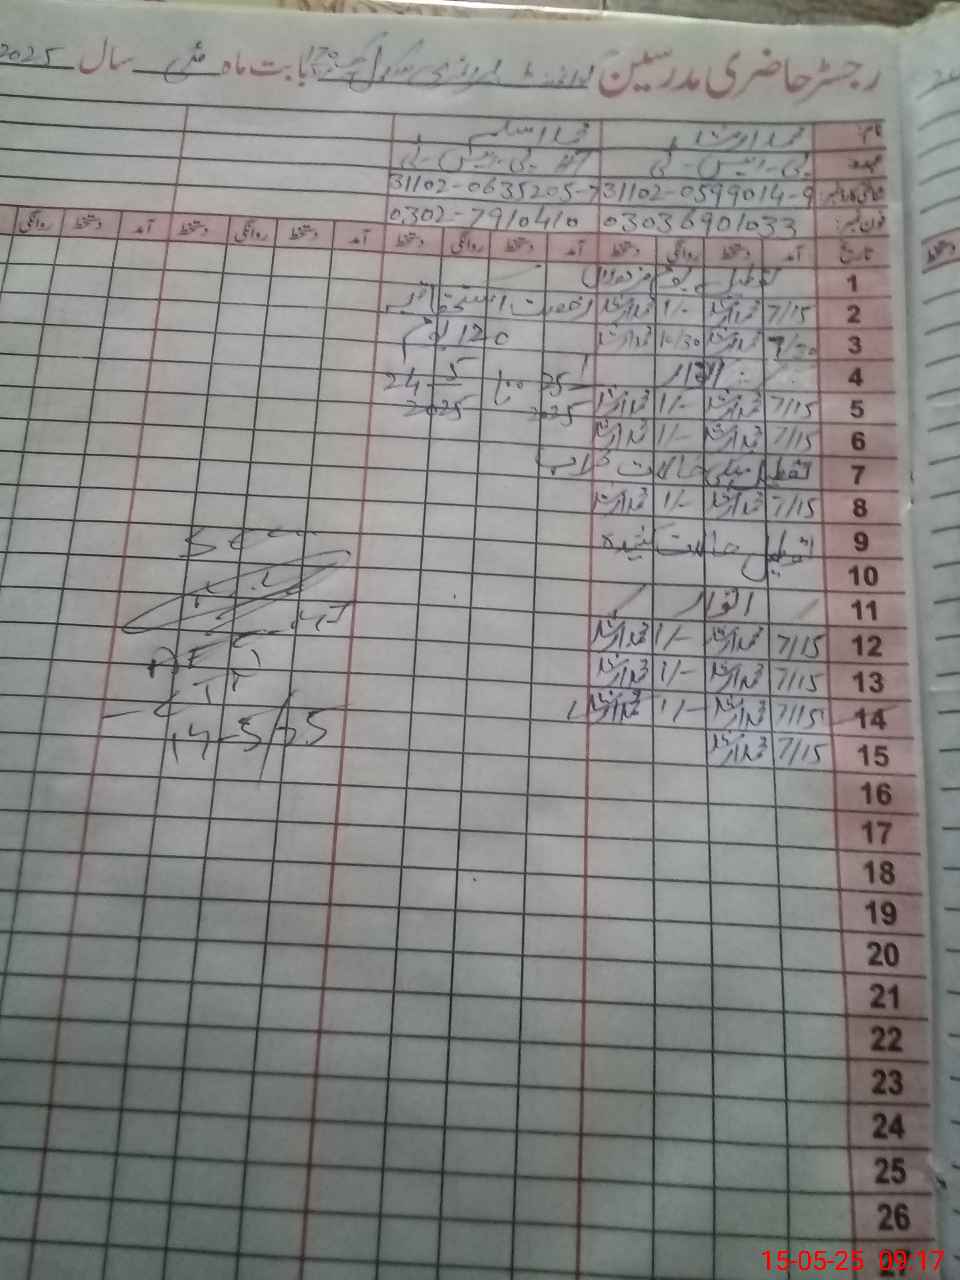 رجسٹر حاضری مدرسین گورنمنٹ پرائمری سکول بابت ماہ مئی سال 2025
نام محمد ارشد محمد اسلم
عہدہ
31102-0599014-9 31102-0635205-7
03036901033 0302-7910410
تاریخ آمد دستخط روانگی دستخط آمد دستخط روانگی دستخط آمد دستخط روانگی دستخط آمد دستخط روانگی
1 تعطیل یوم مزدوراں
2 7/15 محمد ارشد 1/- محمد ارشد رخصت استحقاقیہ
3 7/30 محمد ارشد محمد ارشد 120 یوم
4 اتوار 25 تا 24-5
5 7/15 محمد ارشد 1/- محمد ارشد 2025 2025
6 7/15 محمد ارشد 1/- محمد ارشد
7 تعطیل حالات خراب
8 7/15 محمد ارشد 1/- محمد ارشد
9 تعطیل حالات
10
11 اتوار
12 7/15 محمد ارشد 1/- محمد ارشد
13 7/15 محمد ارشد 1/- محمد ارشد
14 7/15 محمد ارشد 1/- محمد ارشد
15 7/15 محمد ارشد
16
17
18
19
20
21
22
23
24
25
26
27
Seen
14-5/25
15-05-25 09:17